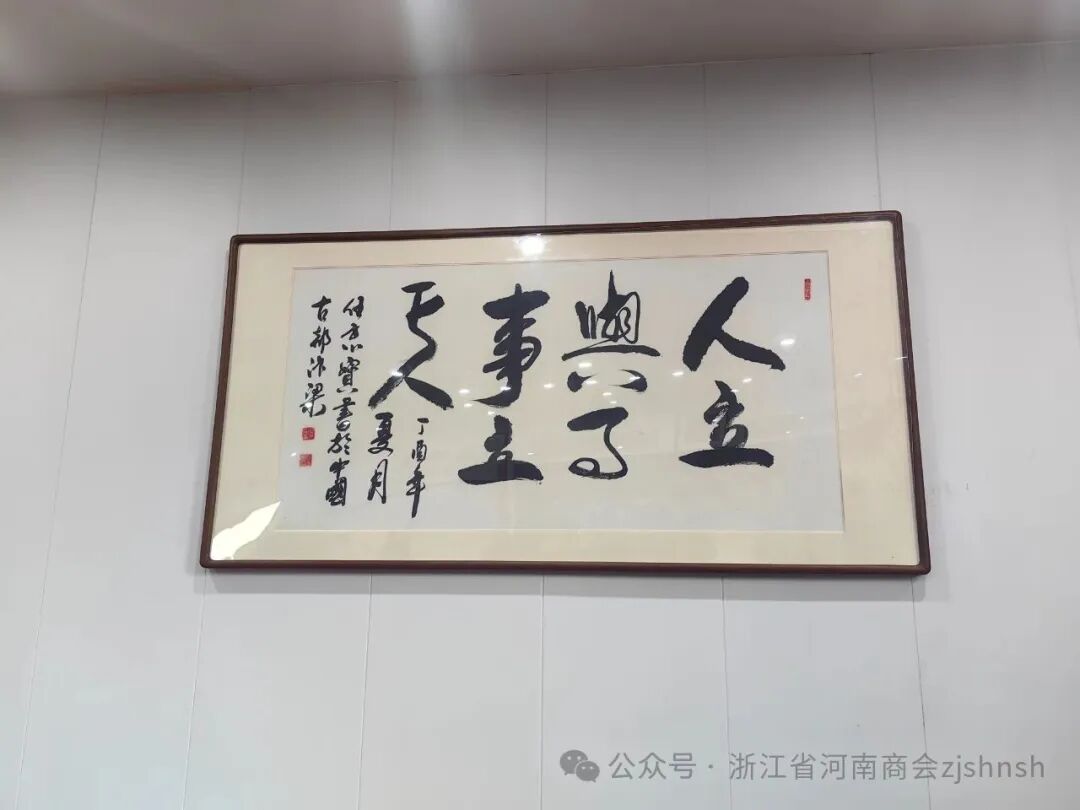 人立
與事
事立
其人
丁酉年
夏月
書於中國
古都汴梁
公众号·浙江省河南商会zjshnsh